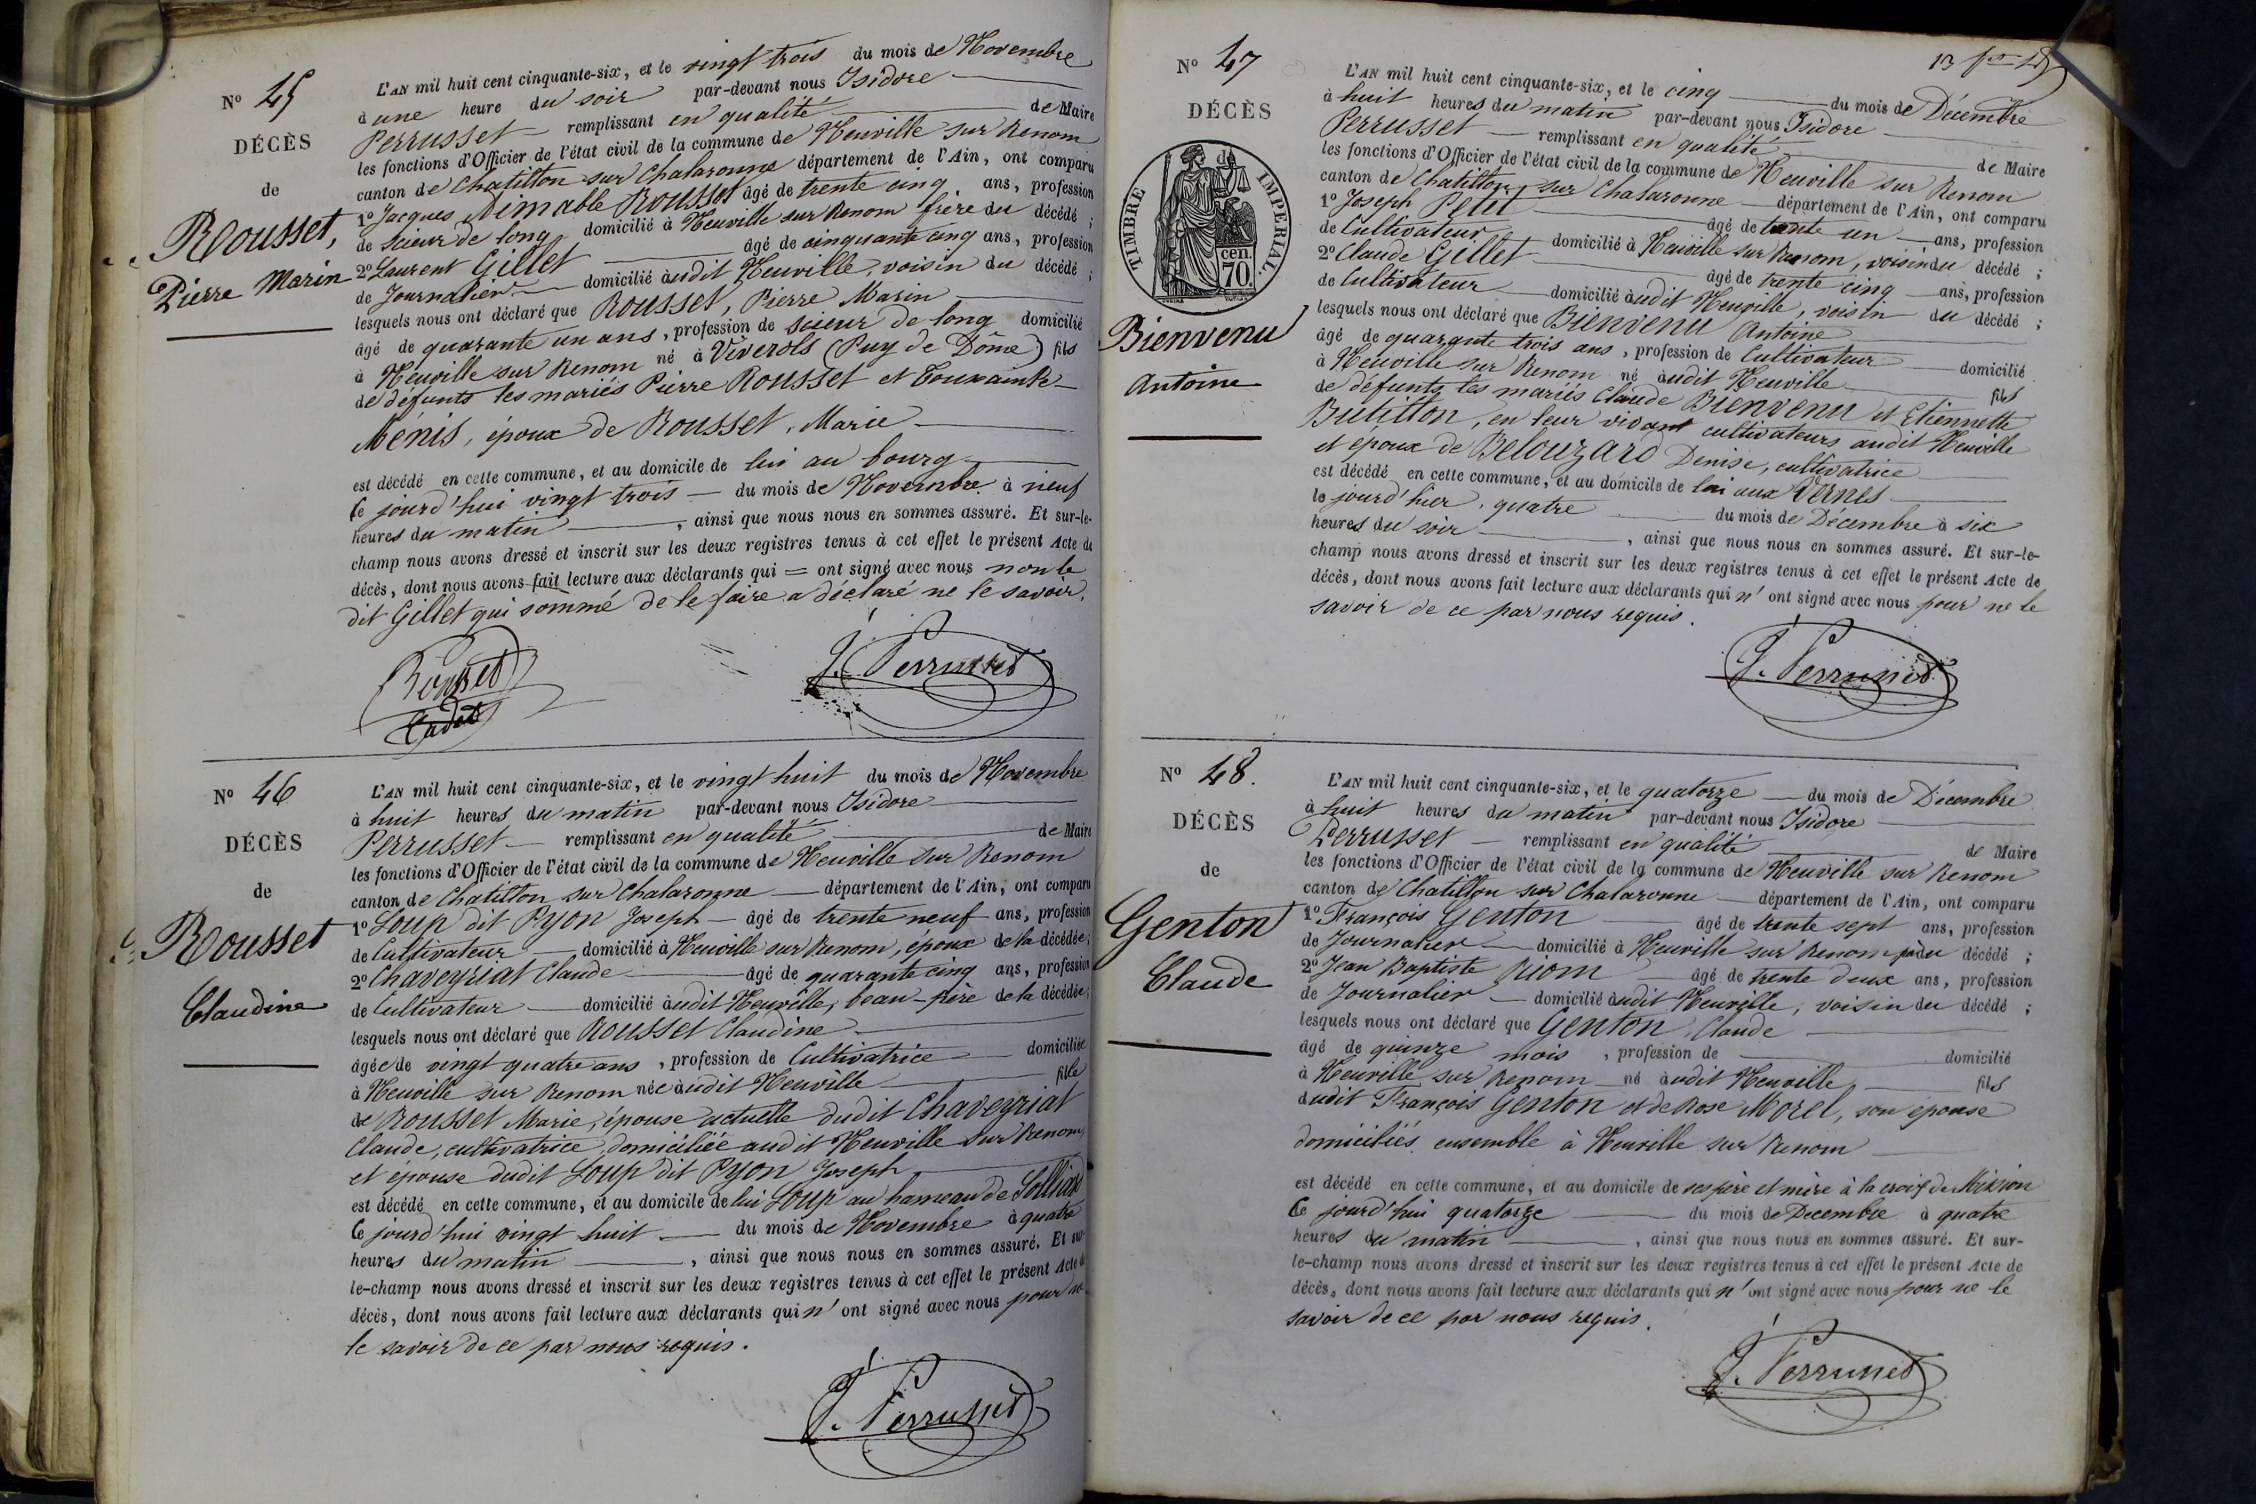 N° 45
DÉCÈS
de
Rousset,
Pierre Marin
L'AN mil huit cent cinquante-six, et le vingt trois du mois de Novembre
à une heure du soir par-devant nous Isidore
Perrusset remplissant en qualité de Maire
les fonctions d'Officier de l'état civil de la commune de Neuville sur Renom
canton de Chatillon sur Chalaronne département de l'Ain, ont comparu
1° Jacques Aimable Rousset âgé de trente cinq ans, profession
de Scieur de long domicilié à Neuville sur Renom frère du décédé ;
2° Laurent Gillet âgé de cinquante cinq ans, profession
de Journalier domicilié audit Neuville, voisin du décédé ;
lesquels nous ont déclaré que Rousset, Pierre Marin
âgé de quarante un ans, profession de scieur de long domicilié
à Neuville sur Renom né à Viverols (Puy de Dôme) fils
de défunts les mariés Pierre Rousset et Touxainte
Ménis, époux de Rousset, Marie
est décédé en cette commune, et au domicile de lui au bourg
Ce jourd'hui vingt trois du mois de Novembre à neuf
heures du matin, ainsi que nous nous en sommes assuré. Et sur-le-
champ nous avons dressé et inscrit sur les deux registres tenus à cet effet le présent Acte de
décès, dont nous avons fait lecture aux déclarants qui = ont signé avec nous non le
dit Gillet qui sommé de le faire a déclaré ne le savoir.
Rousset J. Perrusset
Cadet
N° 46
DÉCÈS
de
Rousset
Claudine
L'AN mil huit cent cinquante-six, et le vingt huit du mois de Novembre
à huit heures du matin par-devant nous Isidore
Perrusset remplissant en qualité de Maire
les fonctions d'Officier de l'état civil de la commune de Neuville sur Renom
canton de Chatillon sur Chalaronne département de l'Ain, ont comparu
1° Loup dit Pyon Joseph âgé de trente neuf ans, profession
de Cultivateur domicilié à Neuville sur Renom, époux de la décédée ;
2° Chaveyriat Claude âgé de quarante cinq ans, profession
de Cultivateur domicilié audit Neuville, beau-père de la décédée ;
lesquels nous ont déclaré que Rousset Claudine
âgée de vingt quatre ans, profession de Cultivatrice domiciliée
à Neuville sur Renom née audit Neuville fille
de Rousset Marie, épouse actuelle dudit Chaveyriat
Claude, cultivatrice, domiciliée audit Neuville sur Renom,
et épouse dudit Loup dit Pyon Joseph
est décédé en cette commune, et au domicile de lui Loup au hameau de Solliat
Ce jourd'hui vingt huit du mois de Novembre à quatre
heures du matin, ainsi que nous nous en sommes assuré. Et sur-
le-champ nous avons dressé et inscrit sur les deux registres tenus à cet effet le présent Acte de
décès, dont nous avons fait lecture aux déclarants qui n' ont signé avec nous pour ne
le savoir de ce par nous requis.
J. Perrusset
13
N° 47
DÉCÈS
de
TIMBRE IMPERIAL
cen.
70.
Bienvenu
Antoine
L'AN mil huit cent cinquante-six, et le cinq du mois de Décembre
à huit heures du matin par-devant nous Isidore
Perrusset remplissant en qualité de Maire
les fonctions d'Officier de l'état civil de la commune de Neuville sur Renom
canton de Chatillon sur Chalaronne département de l'Ain, ont comparu
1° Joseph Petit âgé de trente un ans, profession
de Cultivateur domicilié à Neuville sur Renom, voisin du décédé ;
2° Claude Gillet âgé de trente cinq ans, profession
de Cultivateur domicilié audit Neuville, voisin du décédé ;
lesquels nous ont déclaré que Bienvenu Antoine
âgé de quarante trois ans, profession de Cultivateur domicilié
à Neuville sur Renom né audit Neuville fils
de défunts les mariés Claude Bienvenu et Etiennette
Butillon, en leur vivant cultivateurs audit Neuville
et époux de Belouzard Denise, cultivatrice
est décédé en cette commune, et au domicile de lui aux Vernes
le jourd'hier, quatre du mois de Décembre à six
heures du soir, ainsi que nous nous en sommes assuré. Et sur-le-
champ nous avons dressé et inscrit sur les deux registres tenus à cet effet le présent Acte de
décès, dont nous avons fait lecture aux déclarants qui n' ont signé avec nous pour ne le
savoir de ce par nous requis.
J. Perrusset
N° 48.
DÉCÈS
de
Genton
Claude
L'AN mil huit cent cinquante-six, et le quatorze du mois de Décembre
à huit heures du matin par-devant nous Isidore
Perrusset remplissant en qualité de Maire
les fonctions d'Officier de l'état civil de la commune de Neuville sur Renom
canton de Chatillon sur Chalaronne département de l'Ain, ont comparu
1° François Genton âgé de trente sept ans, profession
de Journalier domicilié à Neuville sur Renom père du décédé ;
2° Jean Baptiste Riom âgé de trente deux ans, profession
de Journalier domicilié audit Neuville, voisin du décédé ;
lesquels nous ont déclaré que Genton, Claude
âgé de quinze mois, profession de domicilié
à Neuville sur Renom né audit Neuville, fils
dudit François Genton et de Rose Morel, son épouse
domiciliés ensemble à Neuville sur Renom
est décédé en cette commune, et au domicile de ses père et mère à la croix de Mission
Ce jourd'hui quatorze du mois de Decembre à quatre
heures du matin, ainsi que nous nous en sommes assuré. Et sur-
le-champ nous avons dressé et inscrit sur les deux registres tenus à cet effet le présent Acte de
décès, dont nous avons fait lecture aux déclarants qui n' ont signé avec nous pour ne le
savoir de ce par nous requis.
J. Perrusset